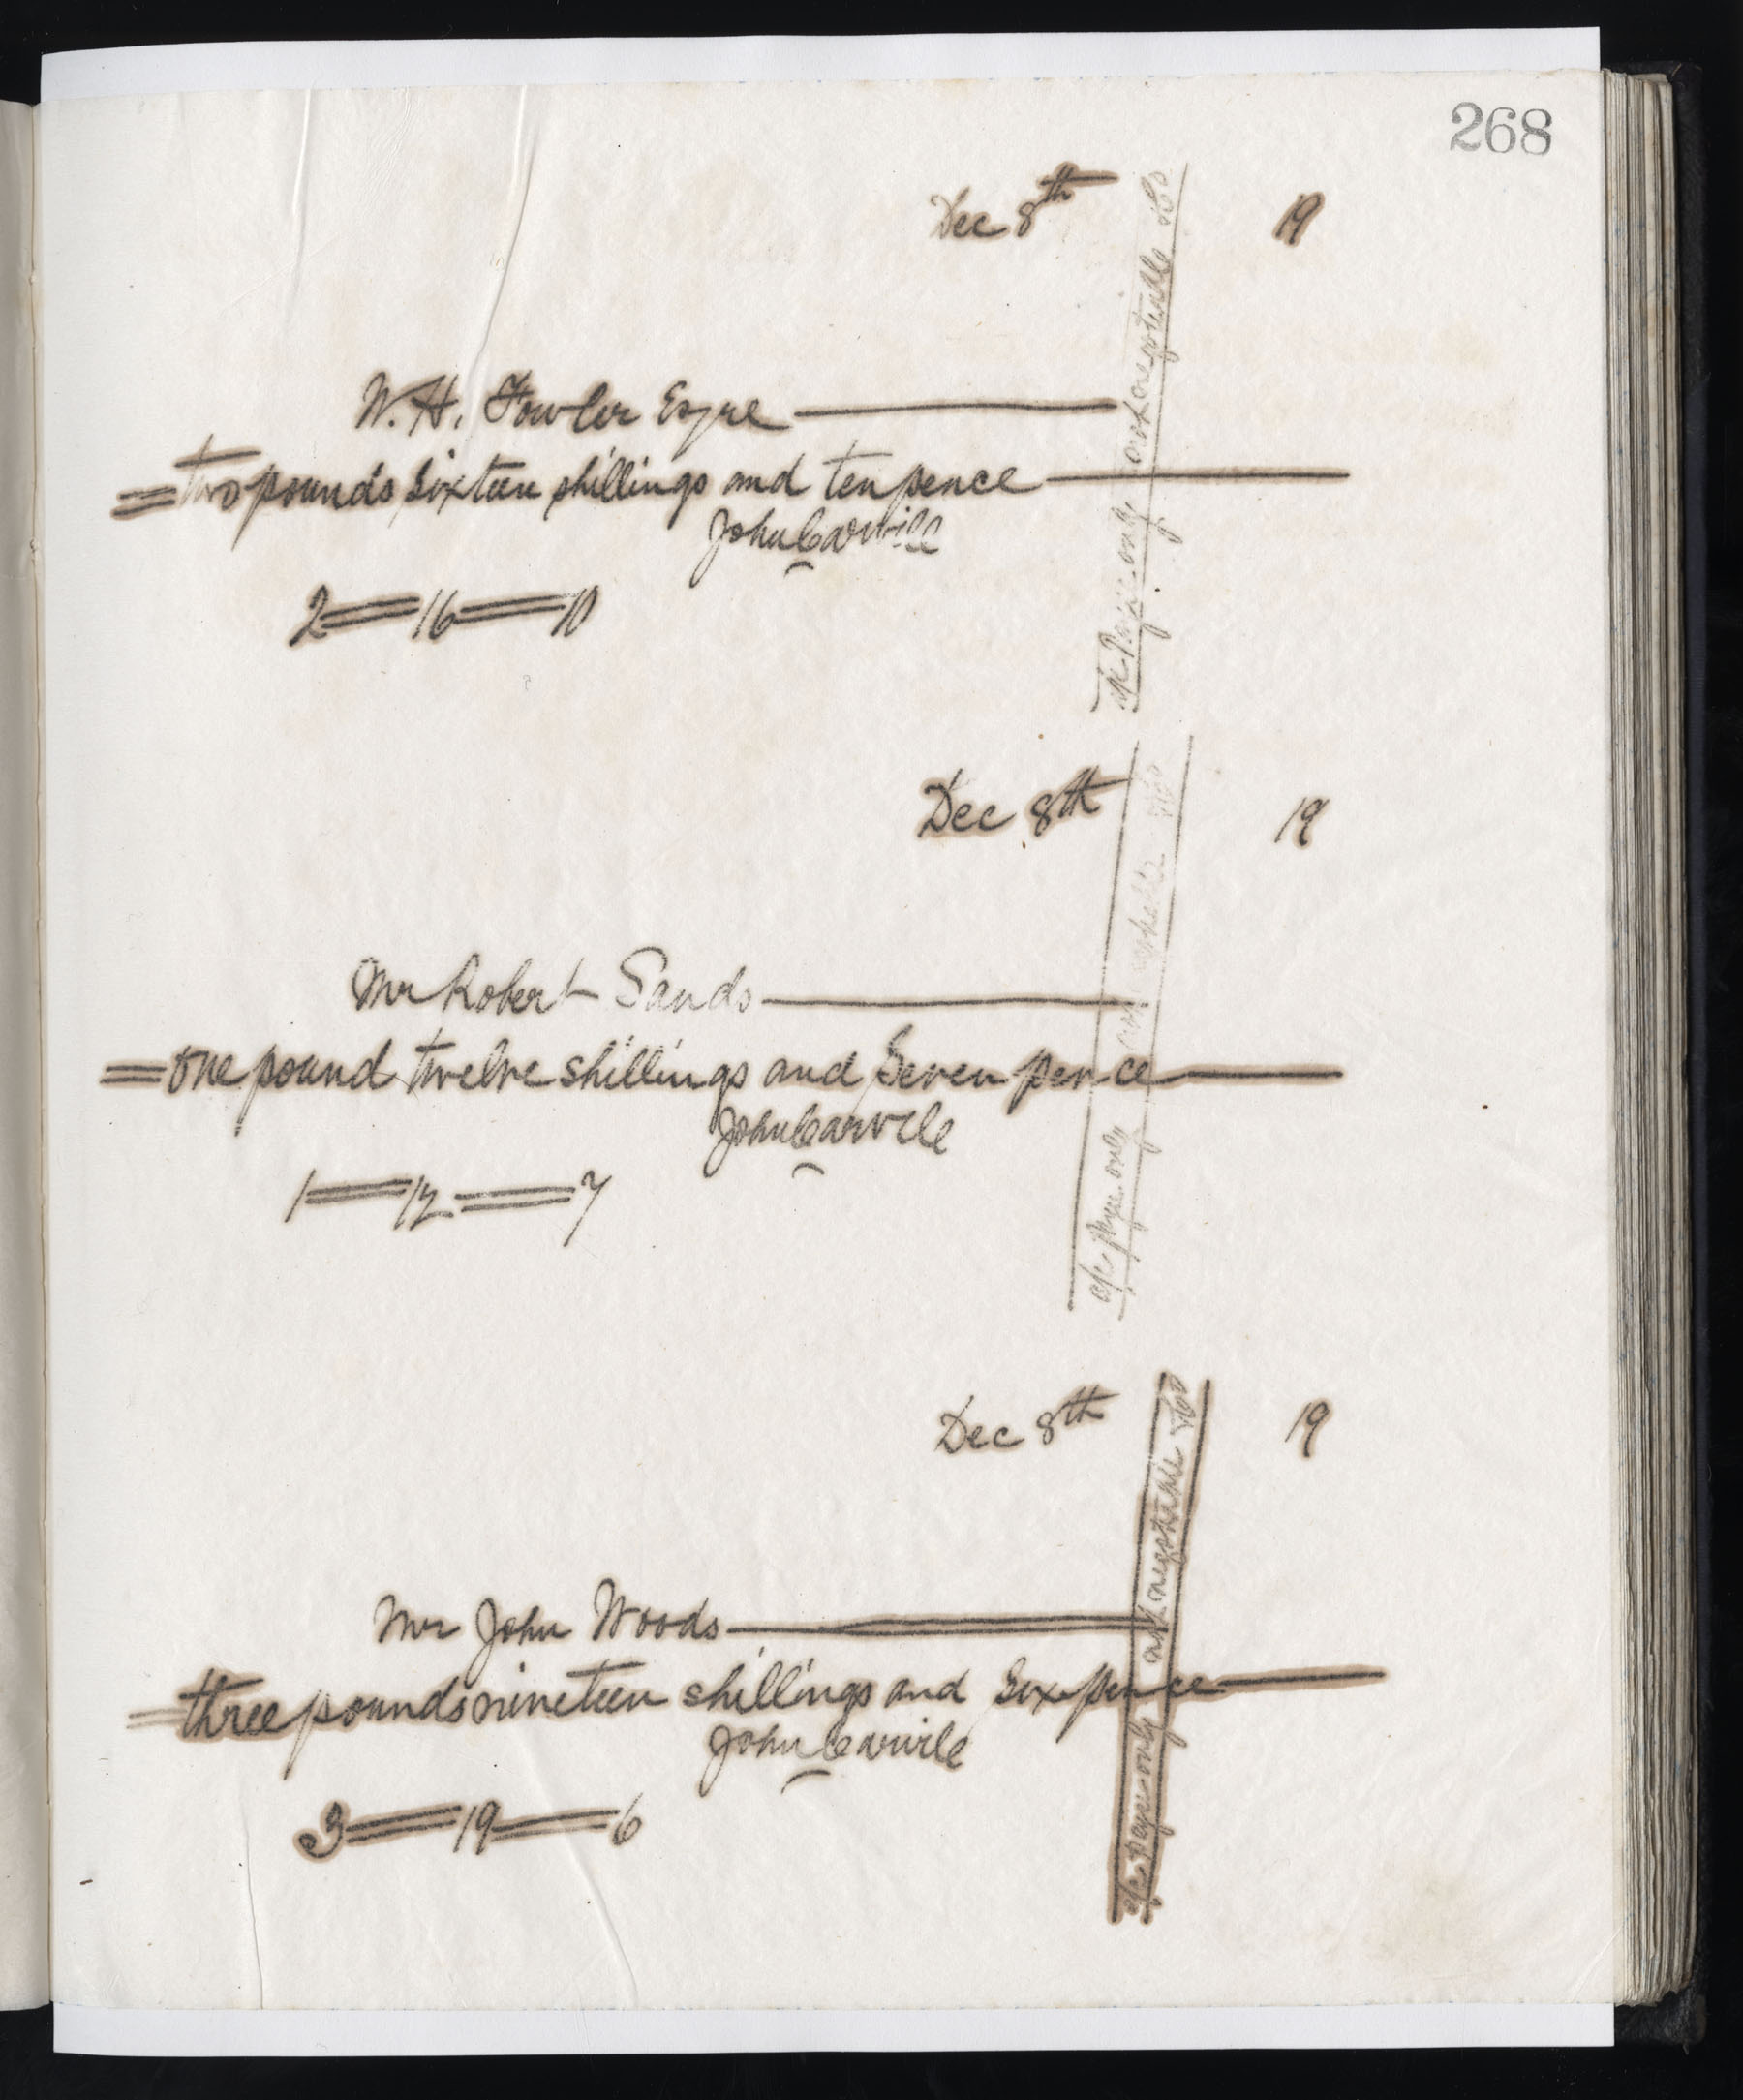 268
Dec 8th 19
W. H. Fowler Esqre
two pounds sixteen shillings and ten pence
John Carvill
2 = 16 = 10
a/c Payee only not negotiable &Co
Dec 8th 19
Mr Robert Sands
= one pound twelve shillings and Seven pence
John Carvill
1 = 12 = 7
a/c payee only not negotiable &Co
Dec 8th 19
Mr John Woods
= three pounds nineteen shillings and Six pence
John Carvill
3 = 19 = 6
a/c payee only not negotiable &Co